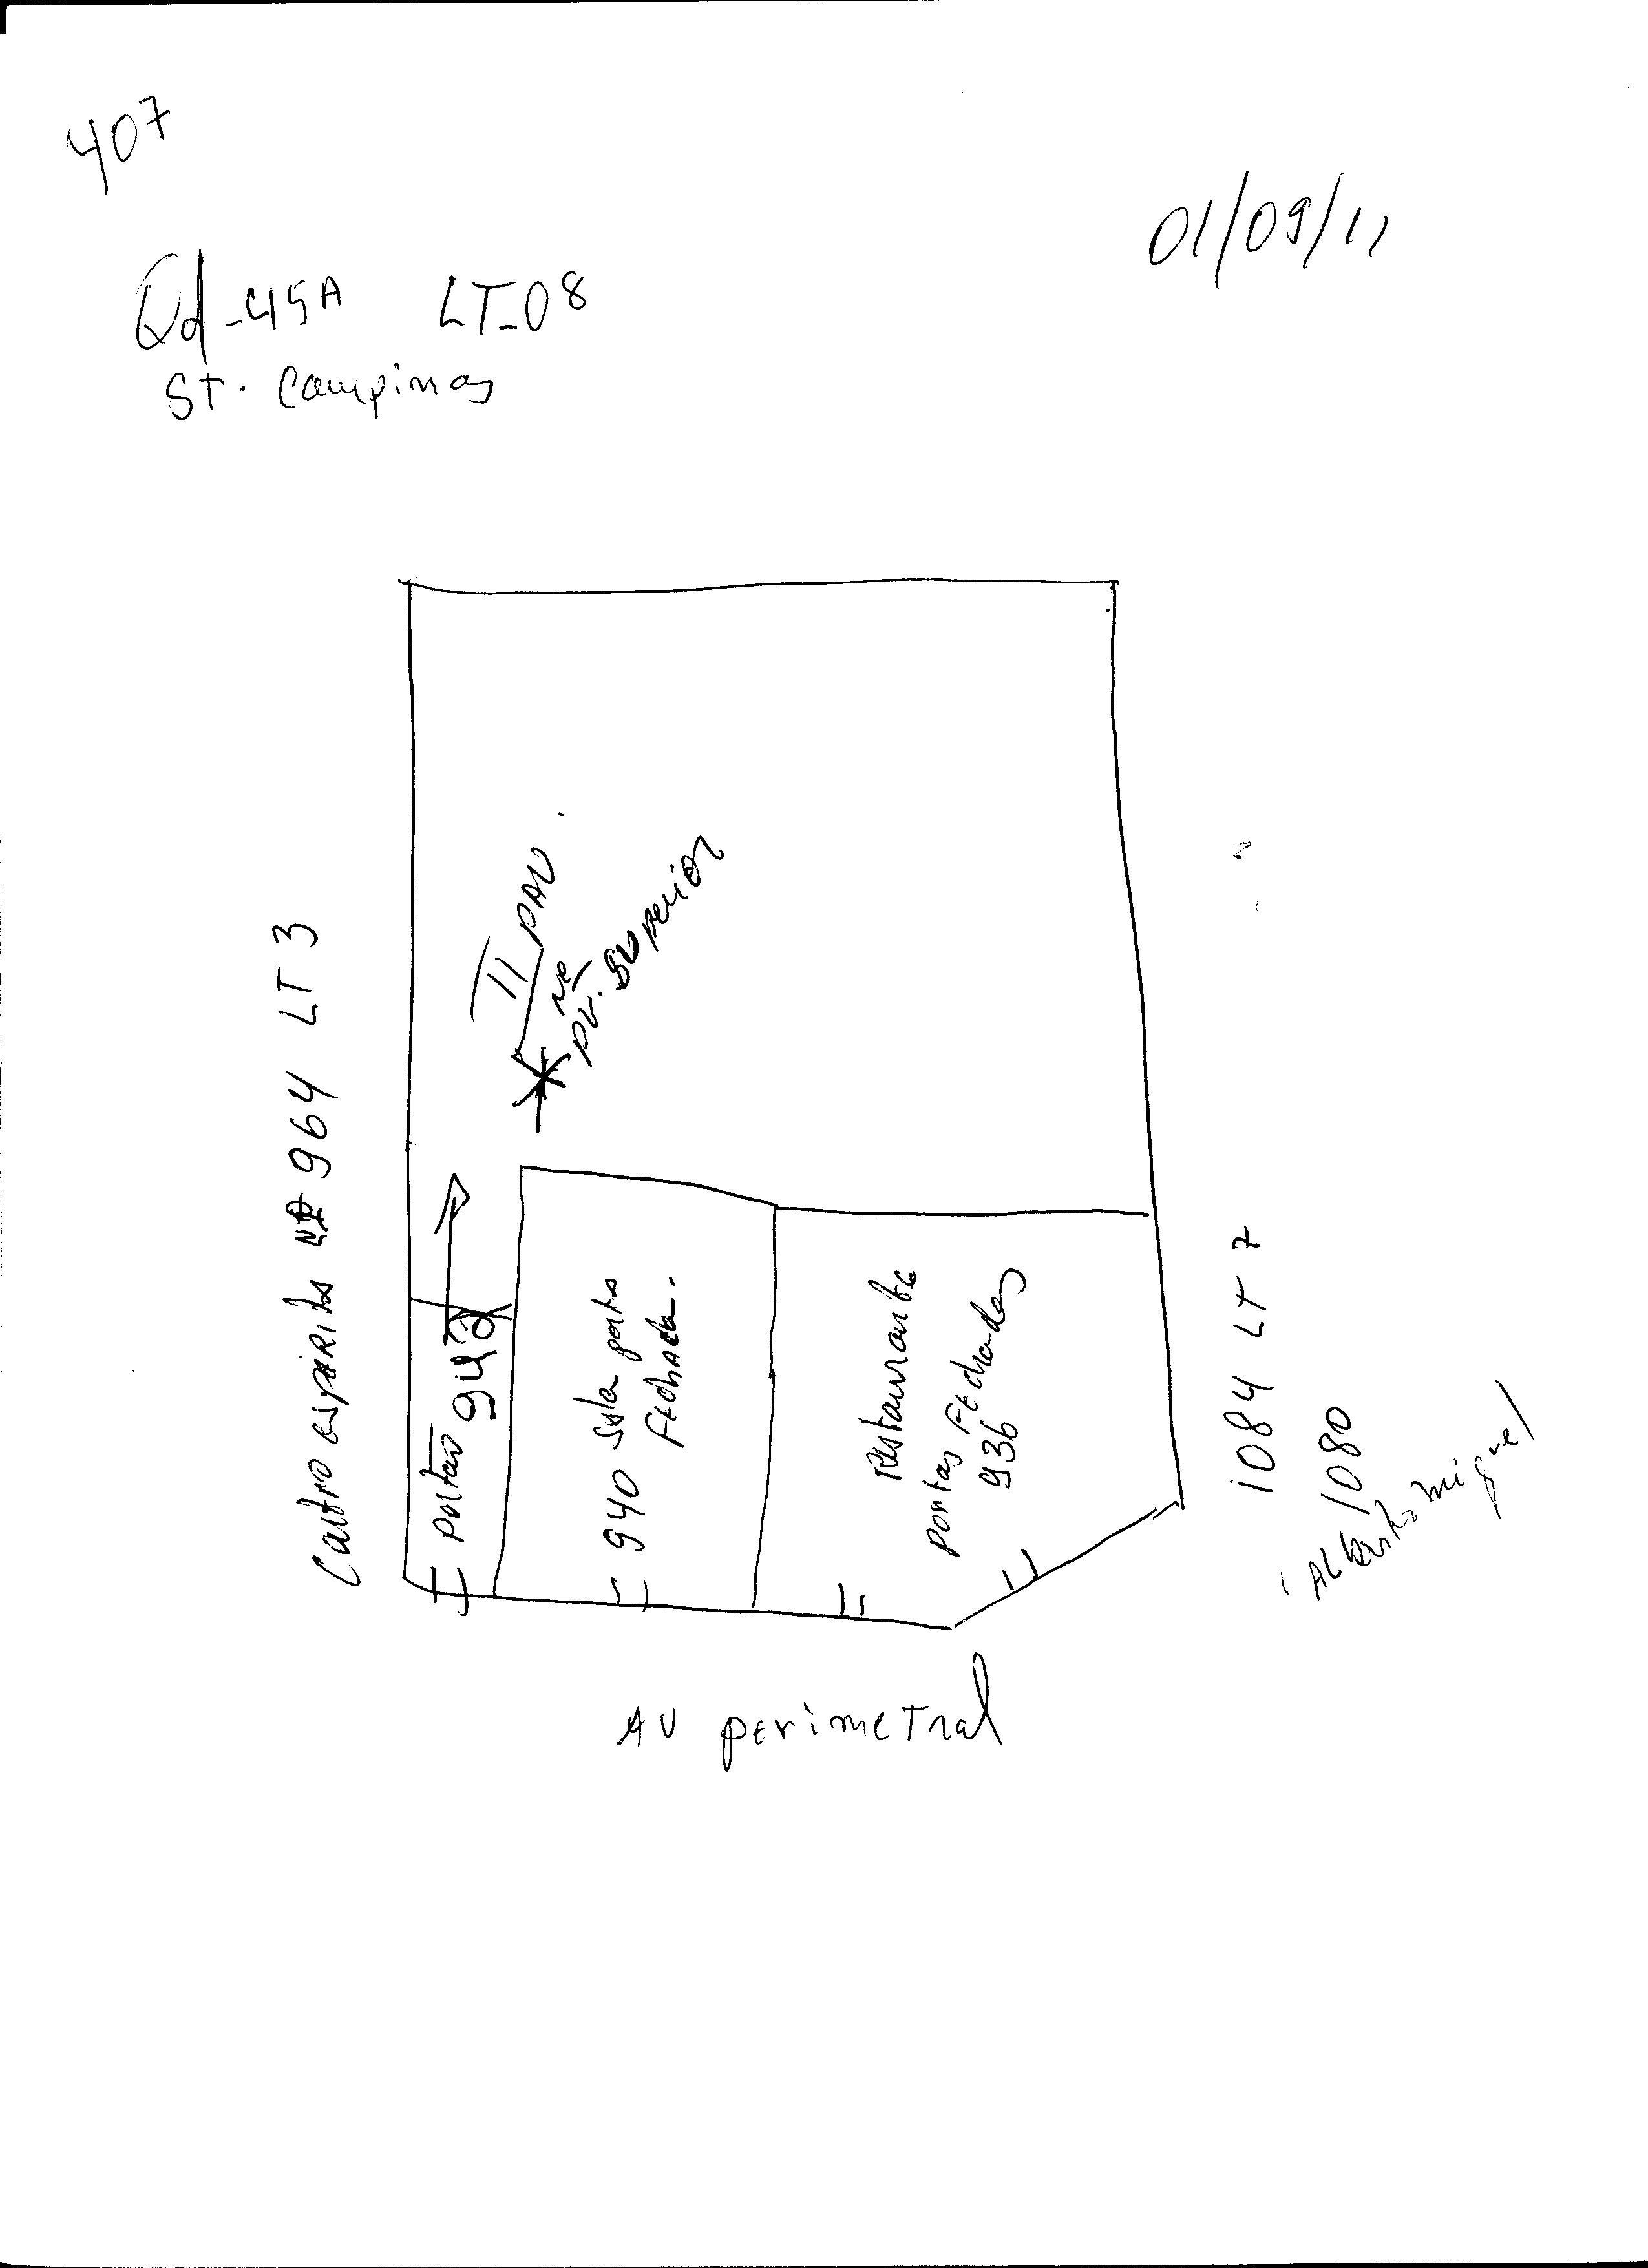 407
01/09/11
Qd-45A LT-08
St. Campinas
II PAV.
superior
964 LT 3
portão
942
940 Sala porta
Fechada.
Restaurante
portas Fechadas
936
1084 LT 7
1080
miguel
AV perimetral